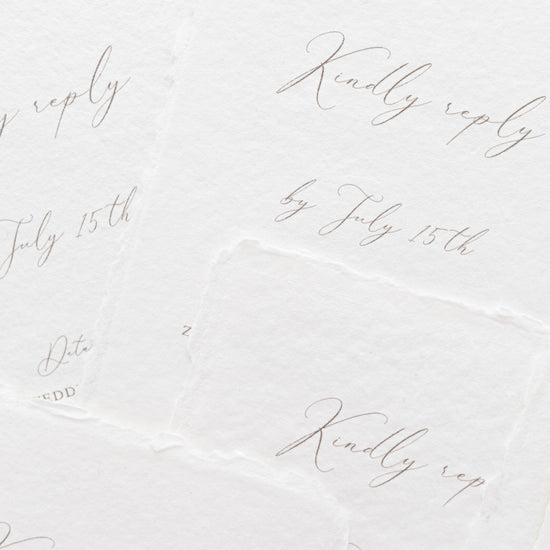 Kindly reply
by July 15th
reply
July 15th
Date
Kindly rep